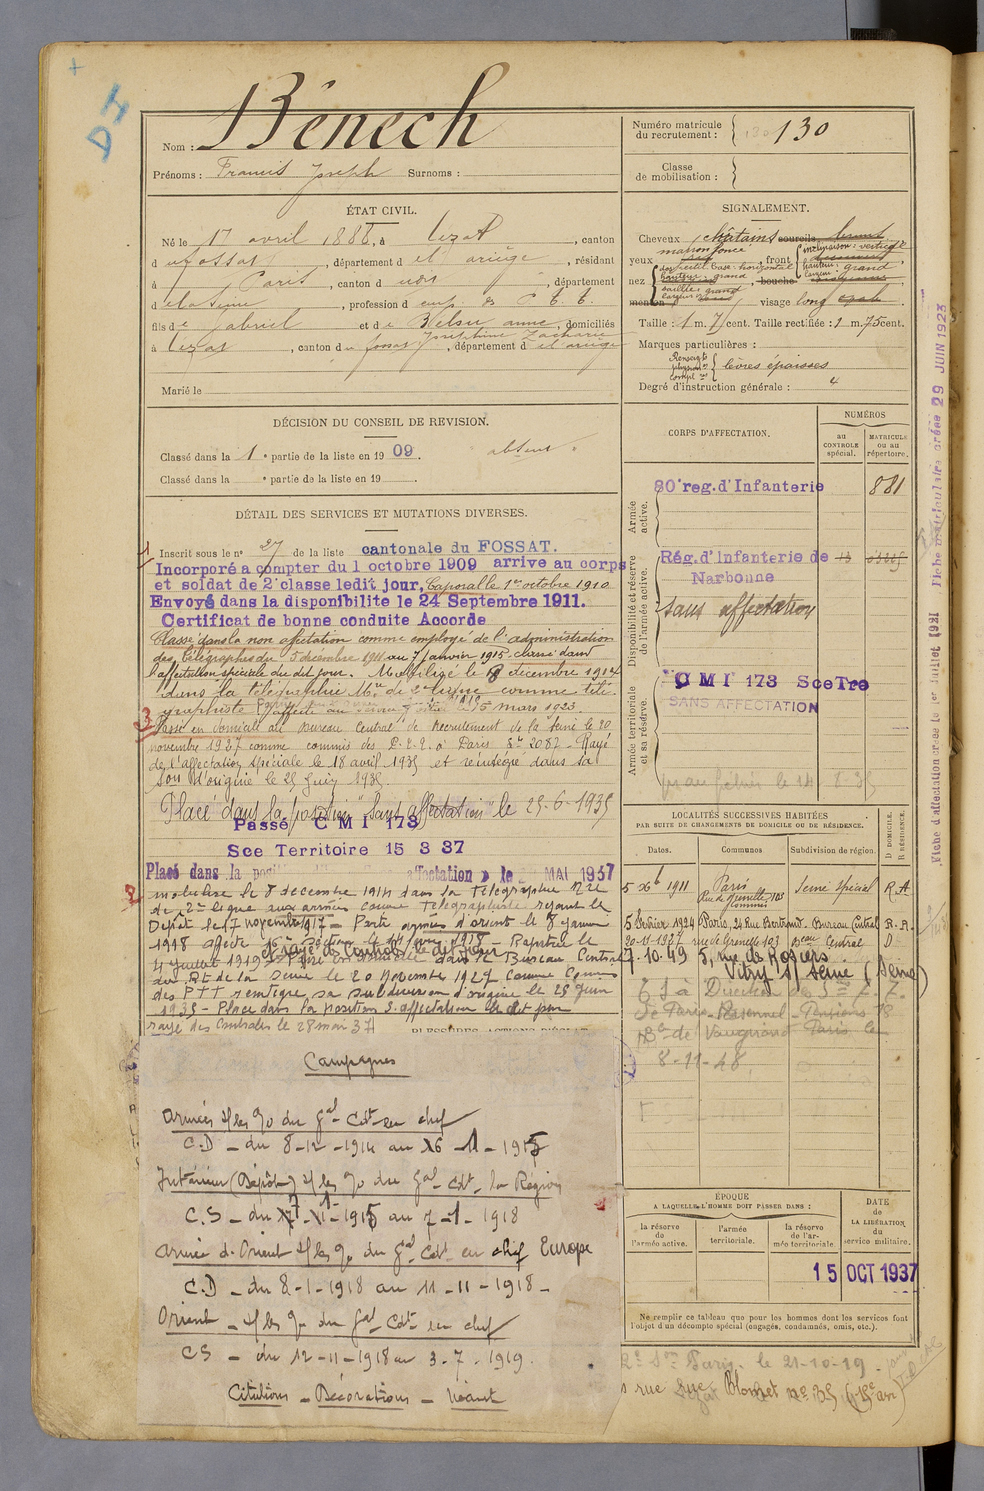 DI
Nom : Bénech
Prénoms : Francis Joseph Surnoms :
Numéro matricule
du recrutement : 130
Classe
de mobilisation :
ÉTAT CIVIL.
Né le 17 avril 1886, à Lezat, canton
d u Fossat, département d e l' ariège, résidant
à Paris, canton d udit, département
d e la Seine, profession d emp. des P. T. T.
fils d e Gabriel et d e Belou anne, domiciliés
Joséphine Zacharie
à Lezat, canton d u fossat, département d e l'ariège
Marié le
SIGNALEMENT.
Cheveux châtains sourcils bruns
marron foncé
yeux, front inclinaison : verticale
hauteur : grand
largeur : grand
nez dos petit base : horizontal
hauteur : grand
saillie : grand
largeur :
bouche
menton visage long
Taille : 1 m. 71 cent. Taille rectifiée : 1 m. 75 cent.
Marques particulières :
lèvres épaisses
Degré d'instruction générale : 4
DÉCISION DU CONSEIL DE REVISION.
Classé dans la 1e partie de la liste en 1909 absent
Classé dans la e partie de la liste en 19
CORPS D'AFFECTATION.
NUMÉROS
au
CONTROLE
spécial.
MATRICULE
ou au
répertoire.
Armée
active.
80e reg. d'Infanterie 881
Disponibilité et réserve
de l'armée active.
Rég. d'Infanterie de
Narbonne
sans affectation
Armée territoriale
et sa réserve.
C M I 173 Sce Tre
SANS AFFECTATION
DÉTAIL DES SERVICES ET MUTATIONS DIVERSES.
Inscrit sous le n° 27 de la liste cantonale du FOSSAT.
Incorporé a compter du 1 octobre 1909 arrive au corps
et soldat de 2e classe ledit jour, Caporal le 1er octobre 1910
Envoyé dans la disponibilite le 24 Septembre 1911.
Certificat de bonne conduite Accorde
Classé dans la non affectation comme employé de l'administration
des télégraphes du 5 décembre 1911 au 7 janvier 1915, classé dans
l'affectation spéciale du dit jour. Mobilisé le 8 décembre 1914
dans la télégraphie Mre de 2e ligne comme télé-
graphiste 15 mars 1923.
Passé en domicile au Bureau Central de Recrutement de la Seine le 20
novembre 1927 comme commis des P.T.T. à Paris Son 2087 - Rayé
de l'affectation spéciale le 18 avril 1935 et réintégré dans sa
Son d'origine le 25 Juin 1935
Placé dans la position "Sans affectation" le 25-6-1935
Passé C M I 173
Sce Territoire 15 3 37
Placé dans la position affectation » le MAI 1937
mobilisé le 8 decembre 1914 dans la Telegraphie Mre
de 2e ligne aux armées comme Telegraphiste rejoint le
Dépôt le 17 novembre 1917 - Parti armées d'orient le 8 janvier
1918 affecté - Rapatrié le
4 juillet 1919 Passé en domicile dans le Bureau Central
du Rt de la Seine le 20 Novembre 1927 comme Commis
des PTT reintegré sa subdivision d'origine le 25 Juin
1935 - Placé dans la position S. affectation le dit jour
rayé des Controles le 28 mai 37
LOCALITÉS SUCCESSIVES HABITÉES
PAR SUITE DE CHANGEMENTS DE DOMICILE OU DE RÉSIDENCE.
Dates. Communes Subdivision de région. D DOMICILE. R RÉSIDENCE.
5 xbre 1911 Paris Seine spécial R.A.
Rue de Grenelle 103
5 Février 1924 Paris, 24 Rue Bertrand. Bureau Central R.A.
20-11-1927 rue de Grenelle 103 Beau Central D
7.10.49 5, rue de Rosiers
Vitry s/ Seine (Seine)
Direction
de Paris - Personnel - Pensions 18
Bd de Vaugirard Paris le
8-11-48.
Fiche d'affectation créée le 1er Juillet 1921 Fiche matriculaire créée 29 JUIN 1923
Campagnes
Armées s/ les Go du Gal Cdt en chef
C.D - du 8-12-1914 au 16-11-1915
Intérieur (Dépôt) s/ les Go du Gal Cdt la Région
C.S - du 17-11-1915 au 7-1-1918
Armée d'Orient s/ les Go du Gal Cdt en chef Europe
C.D - du 8-1-1918 au 11-11-1918 -
Orient - s/ les Go du Gal Cdt en chef
CS - du 12-11-1918 au 3-7-1919.
Citations - Décorations - Néant
ÉPOQUE
A LAQUELLE L'HOMME DOIT PASSER DANS :
la réserve
de
l'armée active.
l'armée
territoriale.
la réserve
de l'ar-
mée territoriale.
DATE
de
LA LIBÉRATION
du
service militaire.
15 OCT 1937
Ne remplir ce tableau que pour les hommes dont les services font
l'objet d'un décompte spécial (engagés, condamnés, omis, etc.).
Paris. le 21-10-19.
rue Blomet no 35 (15e arr)